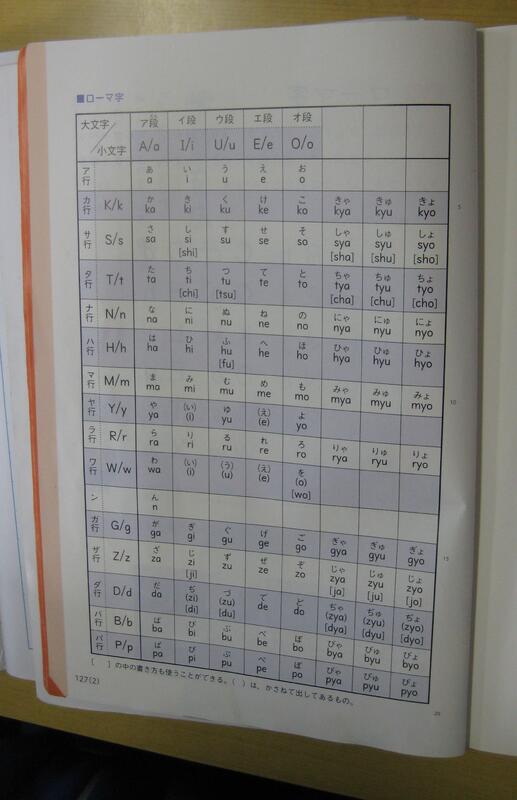 ■ローマ字
大文字／小文字 ア段 イ段 ウ段 エ段 オ段
A/a I/i U/u E/e O/o
ア行 あ い う え お
a i u e o
カ行 K/k か き く け こ きゃ きゅ きょ
ka ki ku ke ko kya kyu kyo
5
サ行 S/s さ し す せ そ しゃ しゅ しょ
sa si su se so sya syu syo
[shi] [sha] [shu] [sho]
タ行 T/t た ち つ て と ちゃ ちゅ ちょ
ta ti tu te to tya tyu tyo
[chi] [tsu] [cha] [chu] [cho]
ナ行 N/n な に ぬ ね の にゃ にゅ にょ
na ni nu ne no nya nyu nyo
ハ行 H/h は ひ ふ へ ほ ひゃ ひゅ ひょ
ha hi hu he ho hya hyu hyo
[fu]
マ行 M/m ま み む め も みゃ みゅ みょ
ma mi mu me mo mya myu myo
10
ヤ行 Y/y や (い) ゆ (え) よ
ya (i) yu (e) yo
ラ行 R/r ら り る れ ろ りゃ りゅ りょ
ra ri ru re ro rya ryu ryo
ワ行 W/w わ (い) (う) (え) を
wa (i) (u) (e) (o)
[wo]
ン ん
n
ガ行 G/g が ぎ ぐ げ ご ぎゃ ぎゅ ぎょ
ga gi gu ge go gya gyu gyo
15
ザ行 Z/z ざ じ ず ぜ ぞ じゃ じゅ じょ
za zi zu ze zo zya zyu zyo
[ji] [ja] [ju] [jo]
ダ行 D/d だ ぢ づ で ど ぢゃ ぢゅ ぢょ
da (zi) (zu) de do (zya) (zyu) (zyo)
[di] [du] [dya] [dyu] [dyo]
バ行 B/b ば び ぶ べ ぼ びゃ びゅ びょ
ba bi bu be bo bya byu byo
パ行 P/p ぱ ぴ ぷ ぺ ぽ ぴゃ ぴゅ ぴょ
pa pi pu pe po pya pyu pyo
[ ]の中の書き方も使うことができる。( )は、かさねて出してあるもの。
127(2)
20